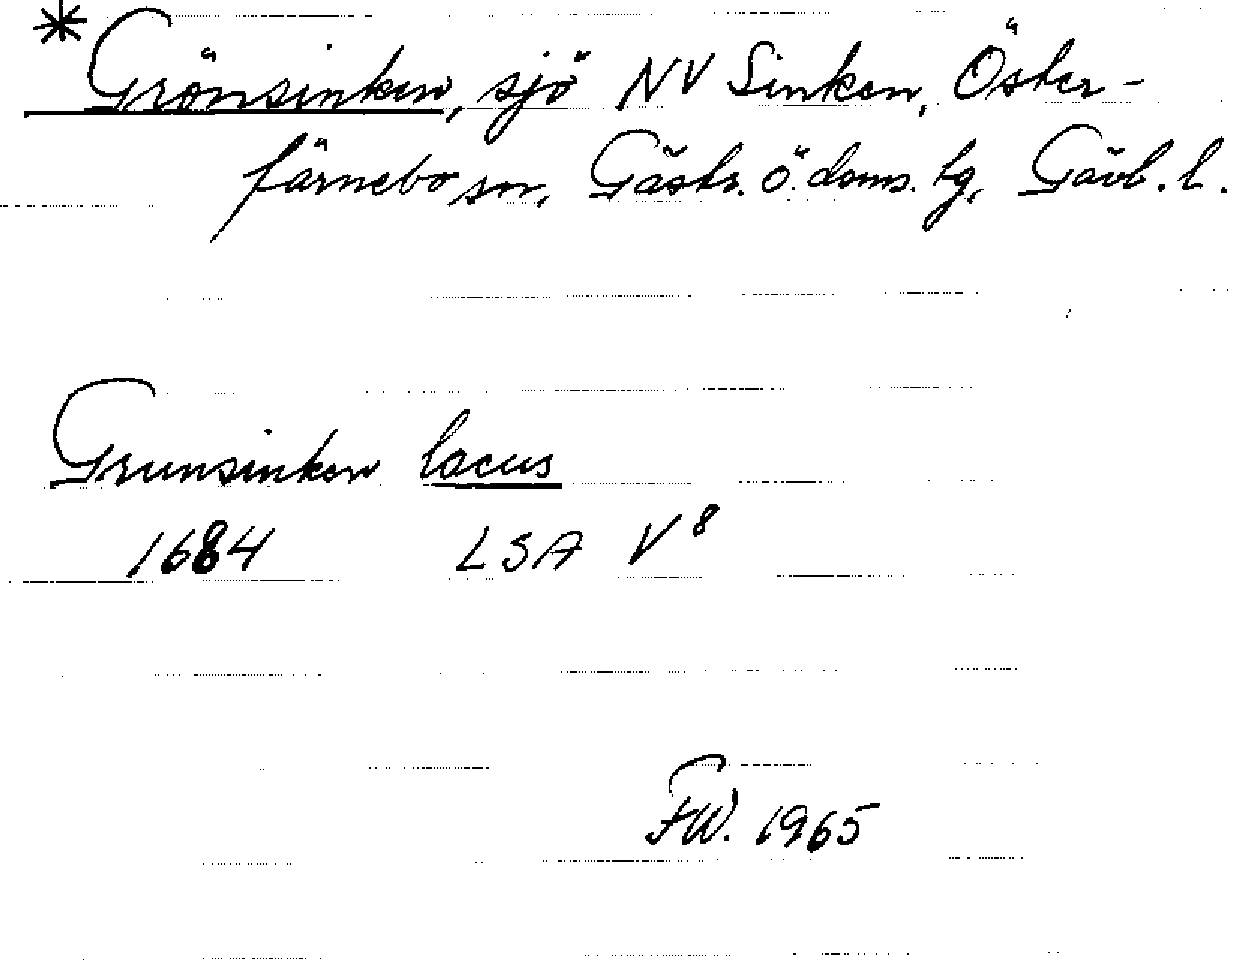 * Grönsinken, sjö NV Sinken, Öster-
färnebo sn, Gästr. ö. doms. tg, Gävl. l.
Grunsinken lacus
1684 LSA V⁸
FW. 1965